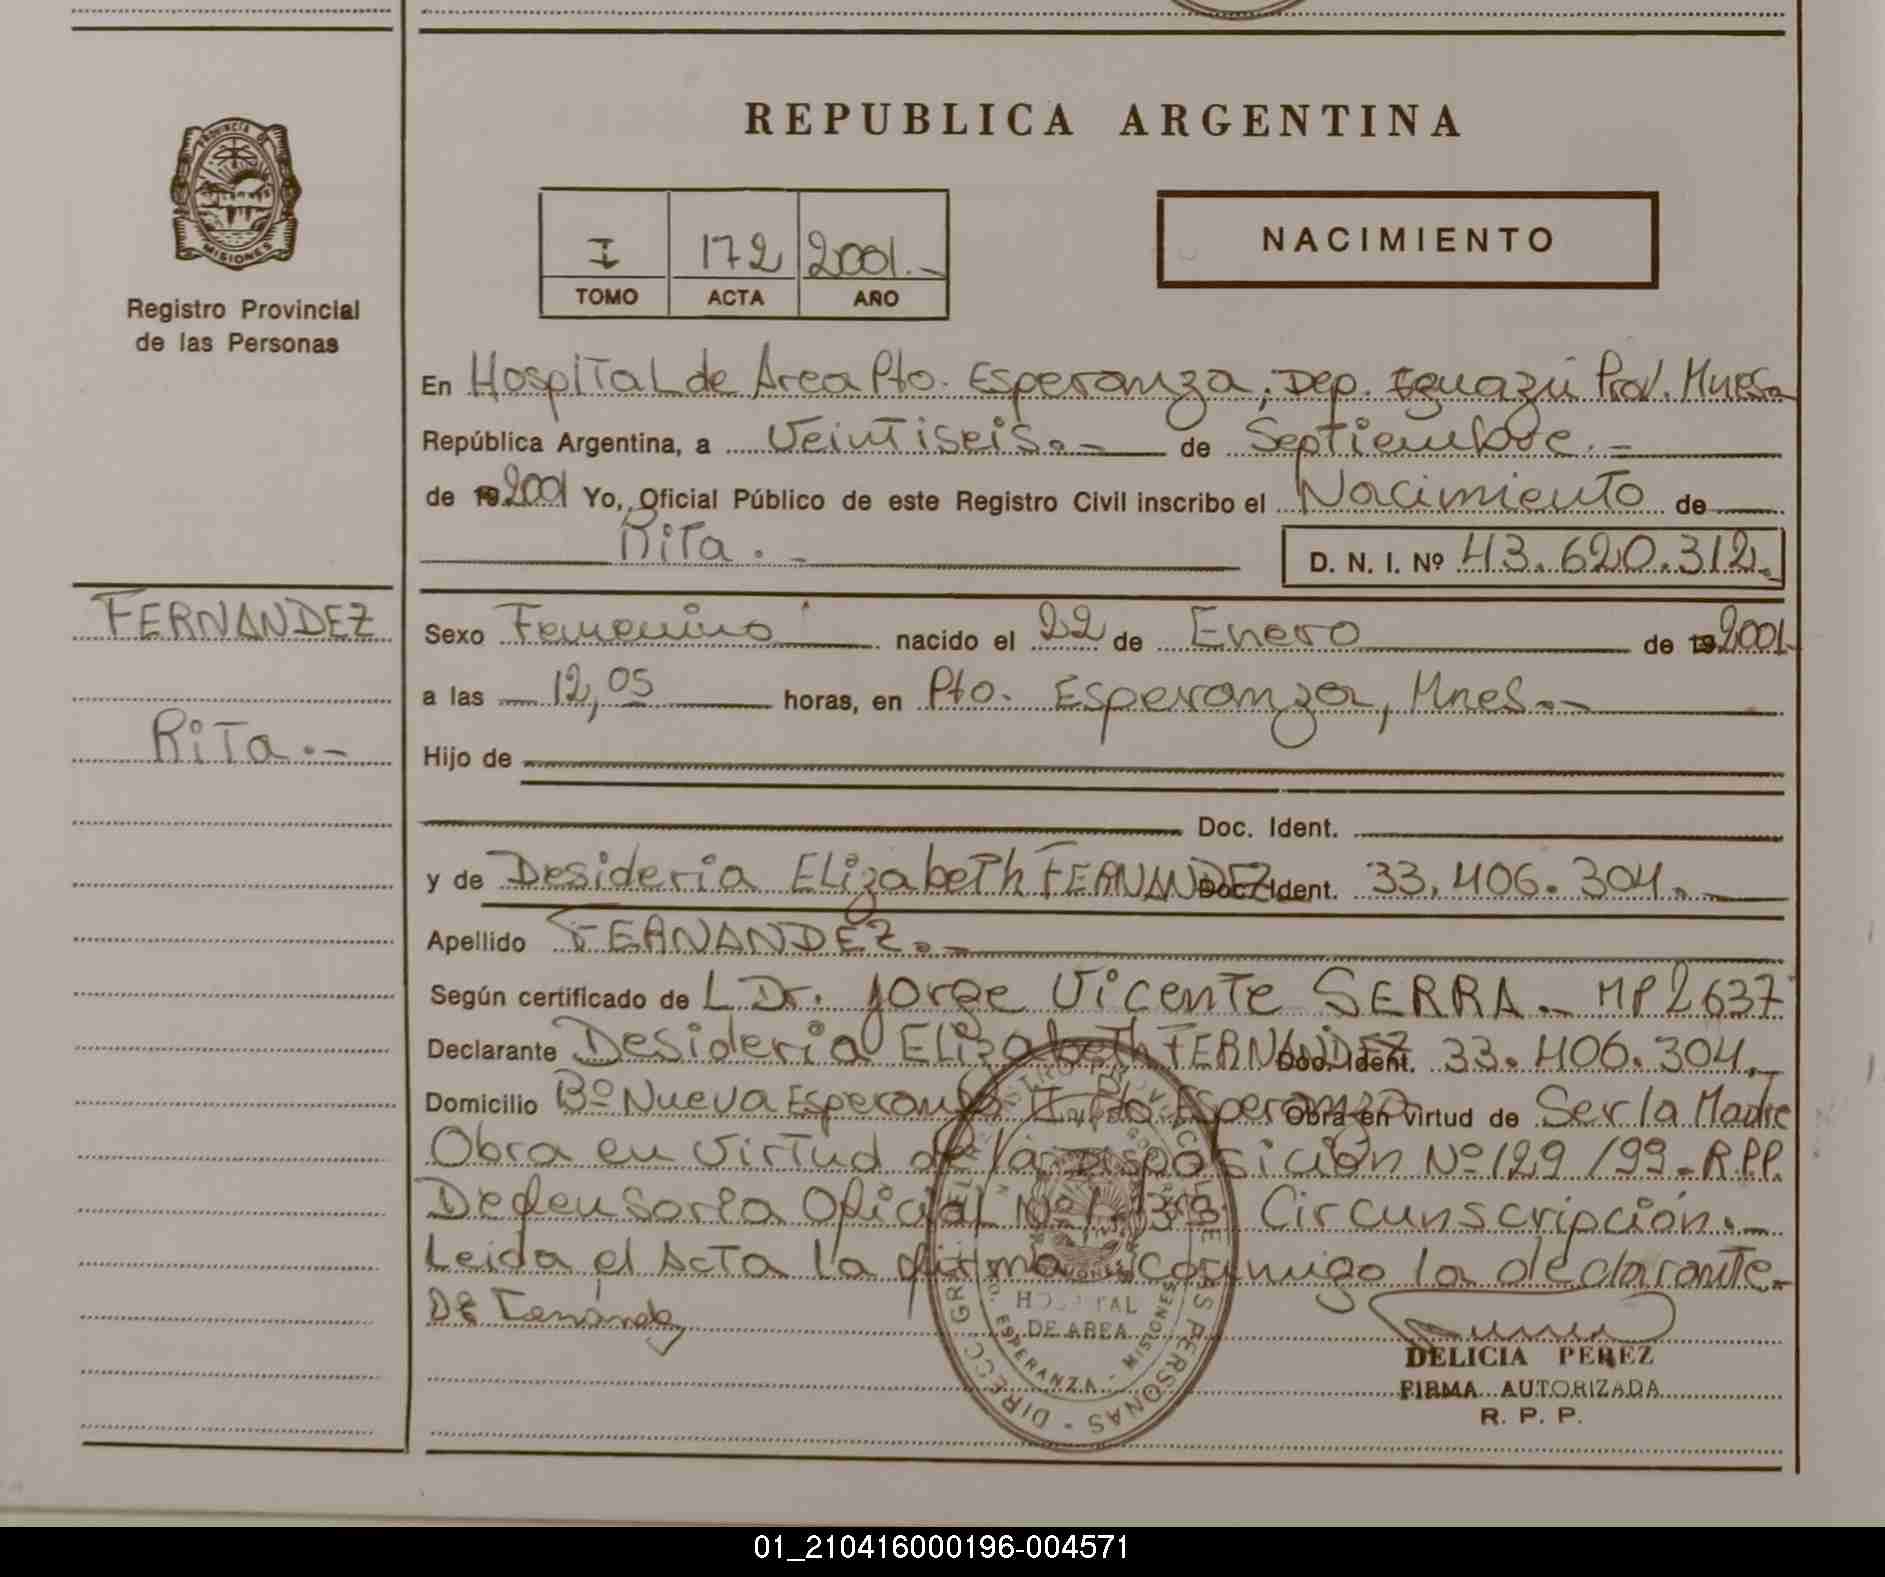 REPUBLICA ARGENTINA
PROVINCIA DE
MISIONES
Registro Provincial
de las Personas
I 172 2001.-
TOMO ACTA AÑO
NACIMIENTO
En Hospital de Area Pto. Esperanza, Dep. Iguazú Prov. Mnes.-
República Argentina, a Veintiseis.- de Septiembre.-
de 192001 Yo, Oficial Público de este Registro Civil inscribo el Nacimiento de
Rita.- D. N. I. Nº 43.620.312.-
FERNANDEZ
Rita.-
Sexo Femenino nacido el 22 de Enero de 192001-
a las 12,05 horas, en Pto. Esperanza, Mnes.-
Hijo de
Doc. Ident.
y de Desideria Elizabeth FERNANDEZ Doc. Ident. 33.406.304.-
Apellido FERNANDEZ.-
Según certificado de L Dr. Jorge Vicente SERRA.- MP2637
Declarante Desideria Elizabeth FERNANDEZ Doc. Ident. 33.406.304.-
Domicilio Bº Nueva Esperanza II Pto Esperanza Obra en virtud de Ser la Madre
Obra en Virtud de la Disposición Nº 129/99-R.P.P.
Defensoría Oficial Nº 1-3ra Circunscripción.-
Leida el Acta la firma conmigo la declarante.-
HOSPITAL
DE AREA
PTO. ESPERANZA - MISIONES
DELICIA PEREZ
FIRMA AUTORIZADA
R. P. P.
01_210416000196-004571